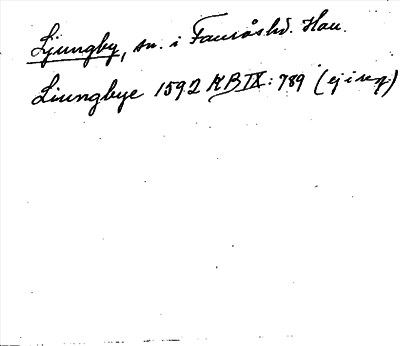 Ljungby, sn. i Fauråshd. Hall.
Liungbye 1592 KB IX: 789 (ej i reg.)